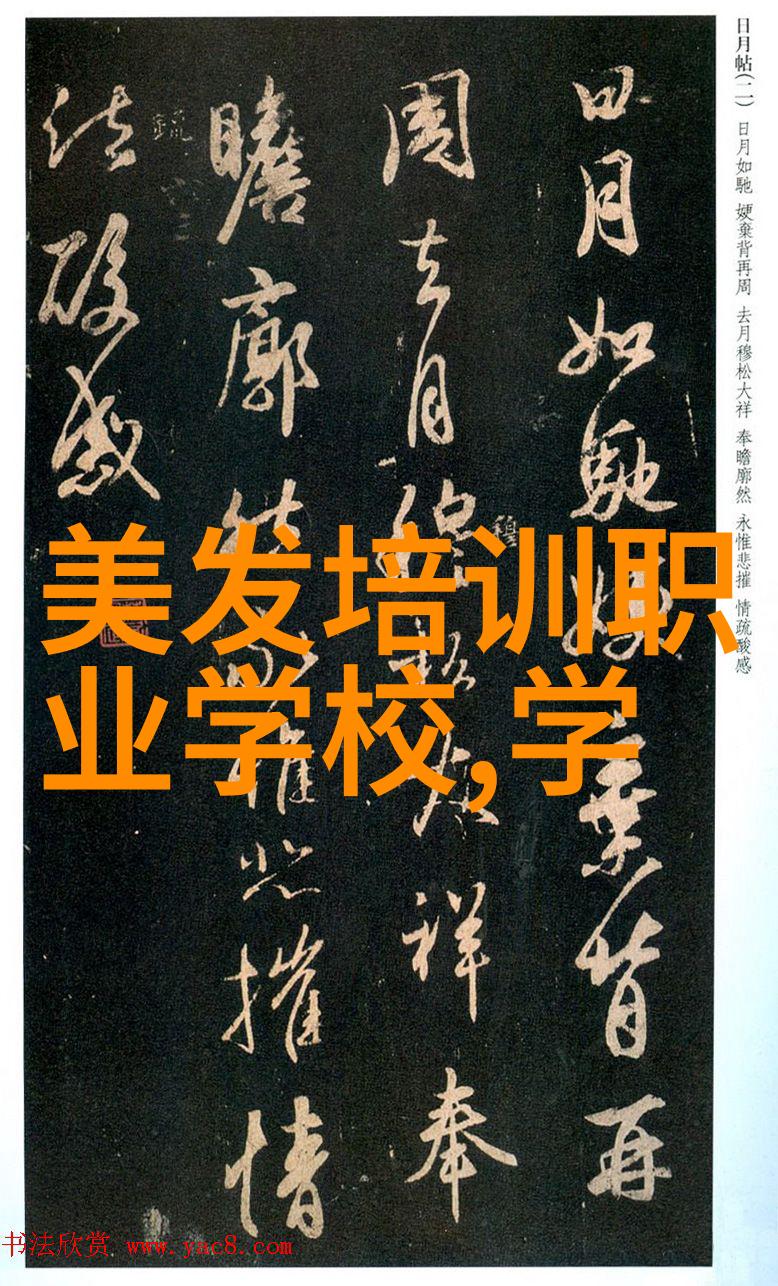 日月帖(二) 日月如馳 㛐棄背再周 去月穆松大祥 奉瞻廓然 永惟悲摧 情疏酸感
日月如馳㛐棄背再
周去月穆松大祥奉
瞻廓然永惟悲摧情
疏酸感
美发培训职
业学校,学
书法欣赏 www.yac8.com